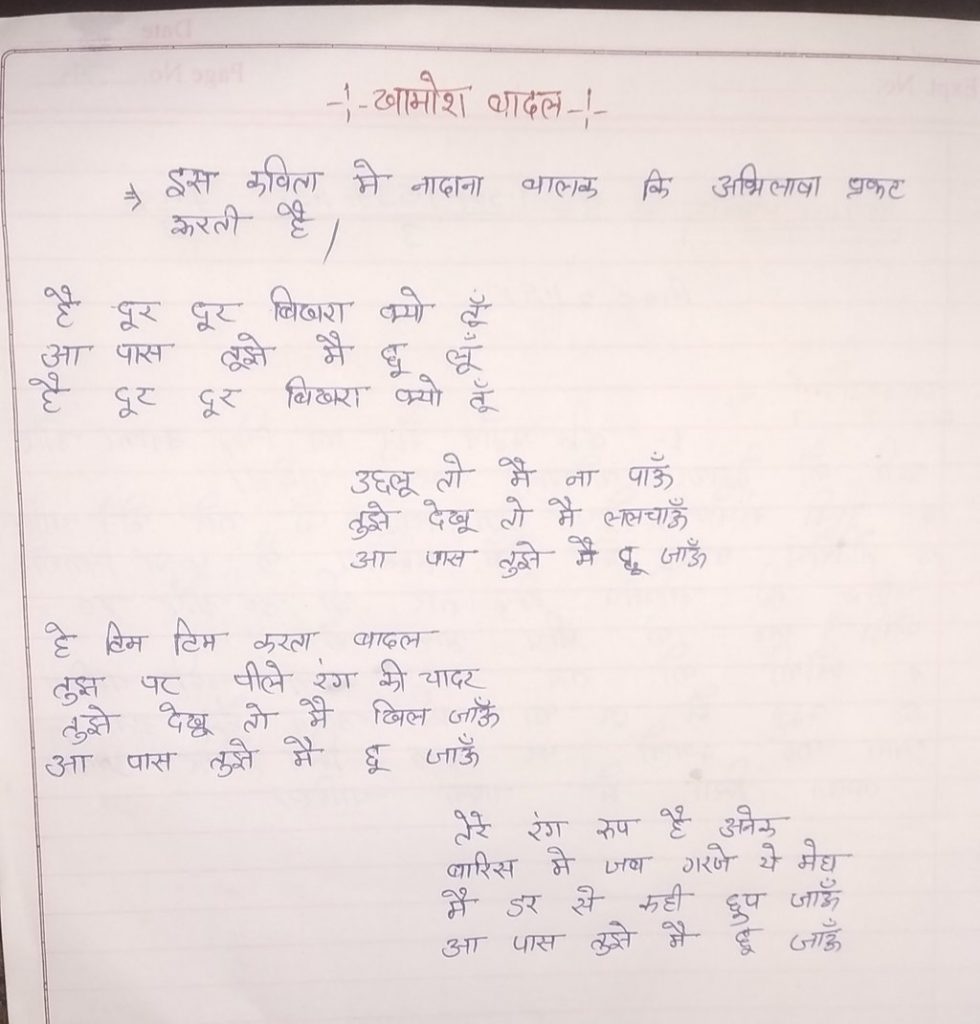 -:- खामोश बादल -:-
⇒ इस कविता मे नादाना बालक कि अभिलाषा प्रकट
करती है /
है दूर दूर बिखरा क्यो तूँ
आ पास तुझे मै छू लूँ
है दूर दूर बिखरा क्यो तूँ
उछलू तो मै ना पाऊँ
तुझे देखू तो मै ललचाऊँ
आ पास तुझे मै छू जाऊँ
हे टिम टिम करता बादल
तुझ पर पीले रंग की चादर
तुझे देखू तो मै खिल जाऊँ
आ पास तुझे मै छू जाऊँ
तेरे रंग रूप है अनेक
बारिस मे जब गरजे ये मेघ
मै डर से कही छुप जाऊँ
आ पास तुझे मै छू जाऊँ